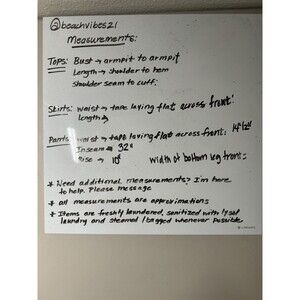 @beachvibes21
Measurements:
Tops: Bust → armpit to armpit
Length → shoulder to hem
Shoulder seam to cuff:
Skirts: waist → tape laying flat across front:
Length →
Pants: waist → tape laying flat across front: 14 1/2"
Inseam 32"
Rise → 10" width of bottom leg front:
* Need additional measurements? I'm here
to help. Please message
* all measurements are approximations
* Items are freshly laundered, sanitized with lysol
laundry and steamed / bagged whenever possible